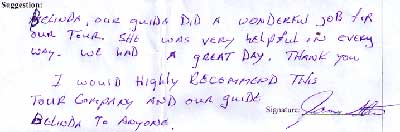 Suggestion:
BELINDA, OUR GUIDA DID A WONDERFUL JOB FOR
OUR TOUR. SHE WAS VERY HELPFUL IN EVERY
WAY. WE HAD A GREAT DAY. THANK YOU
I WOULD HIGHLY RECOMMEND THIS
TOUR COMPANY AND OUR GUIDE
Signature:
BELINDA TO ANYONE.